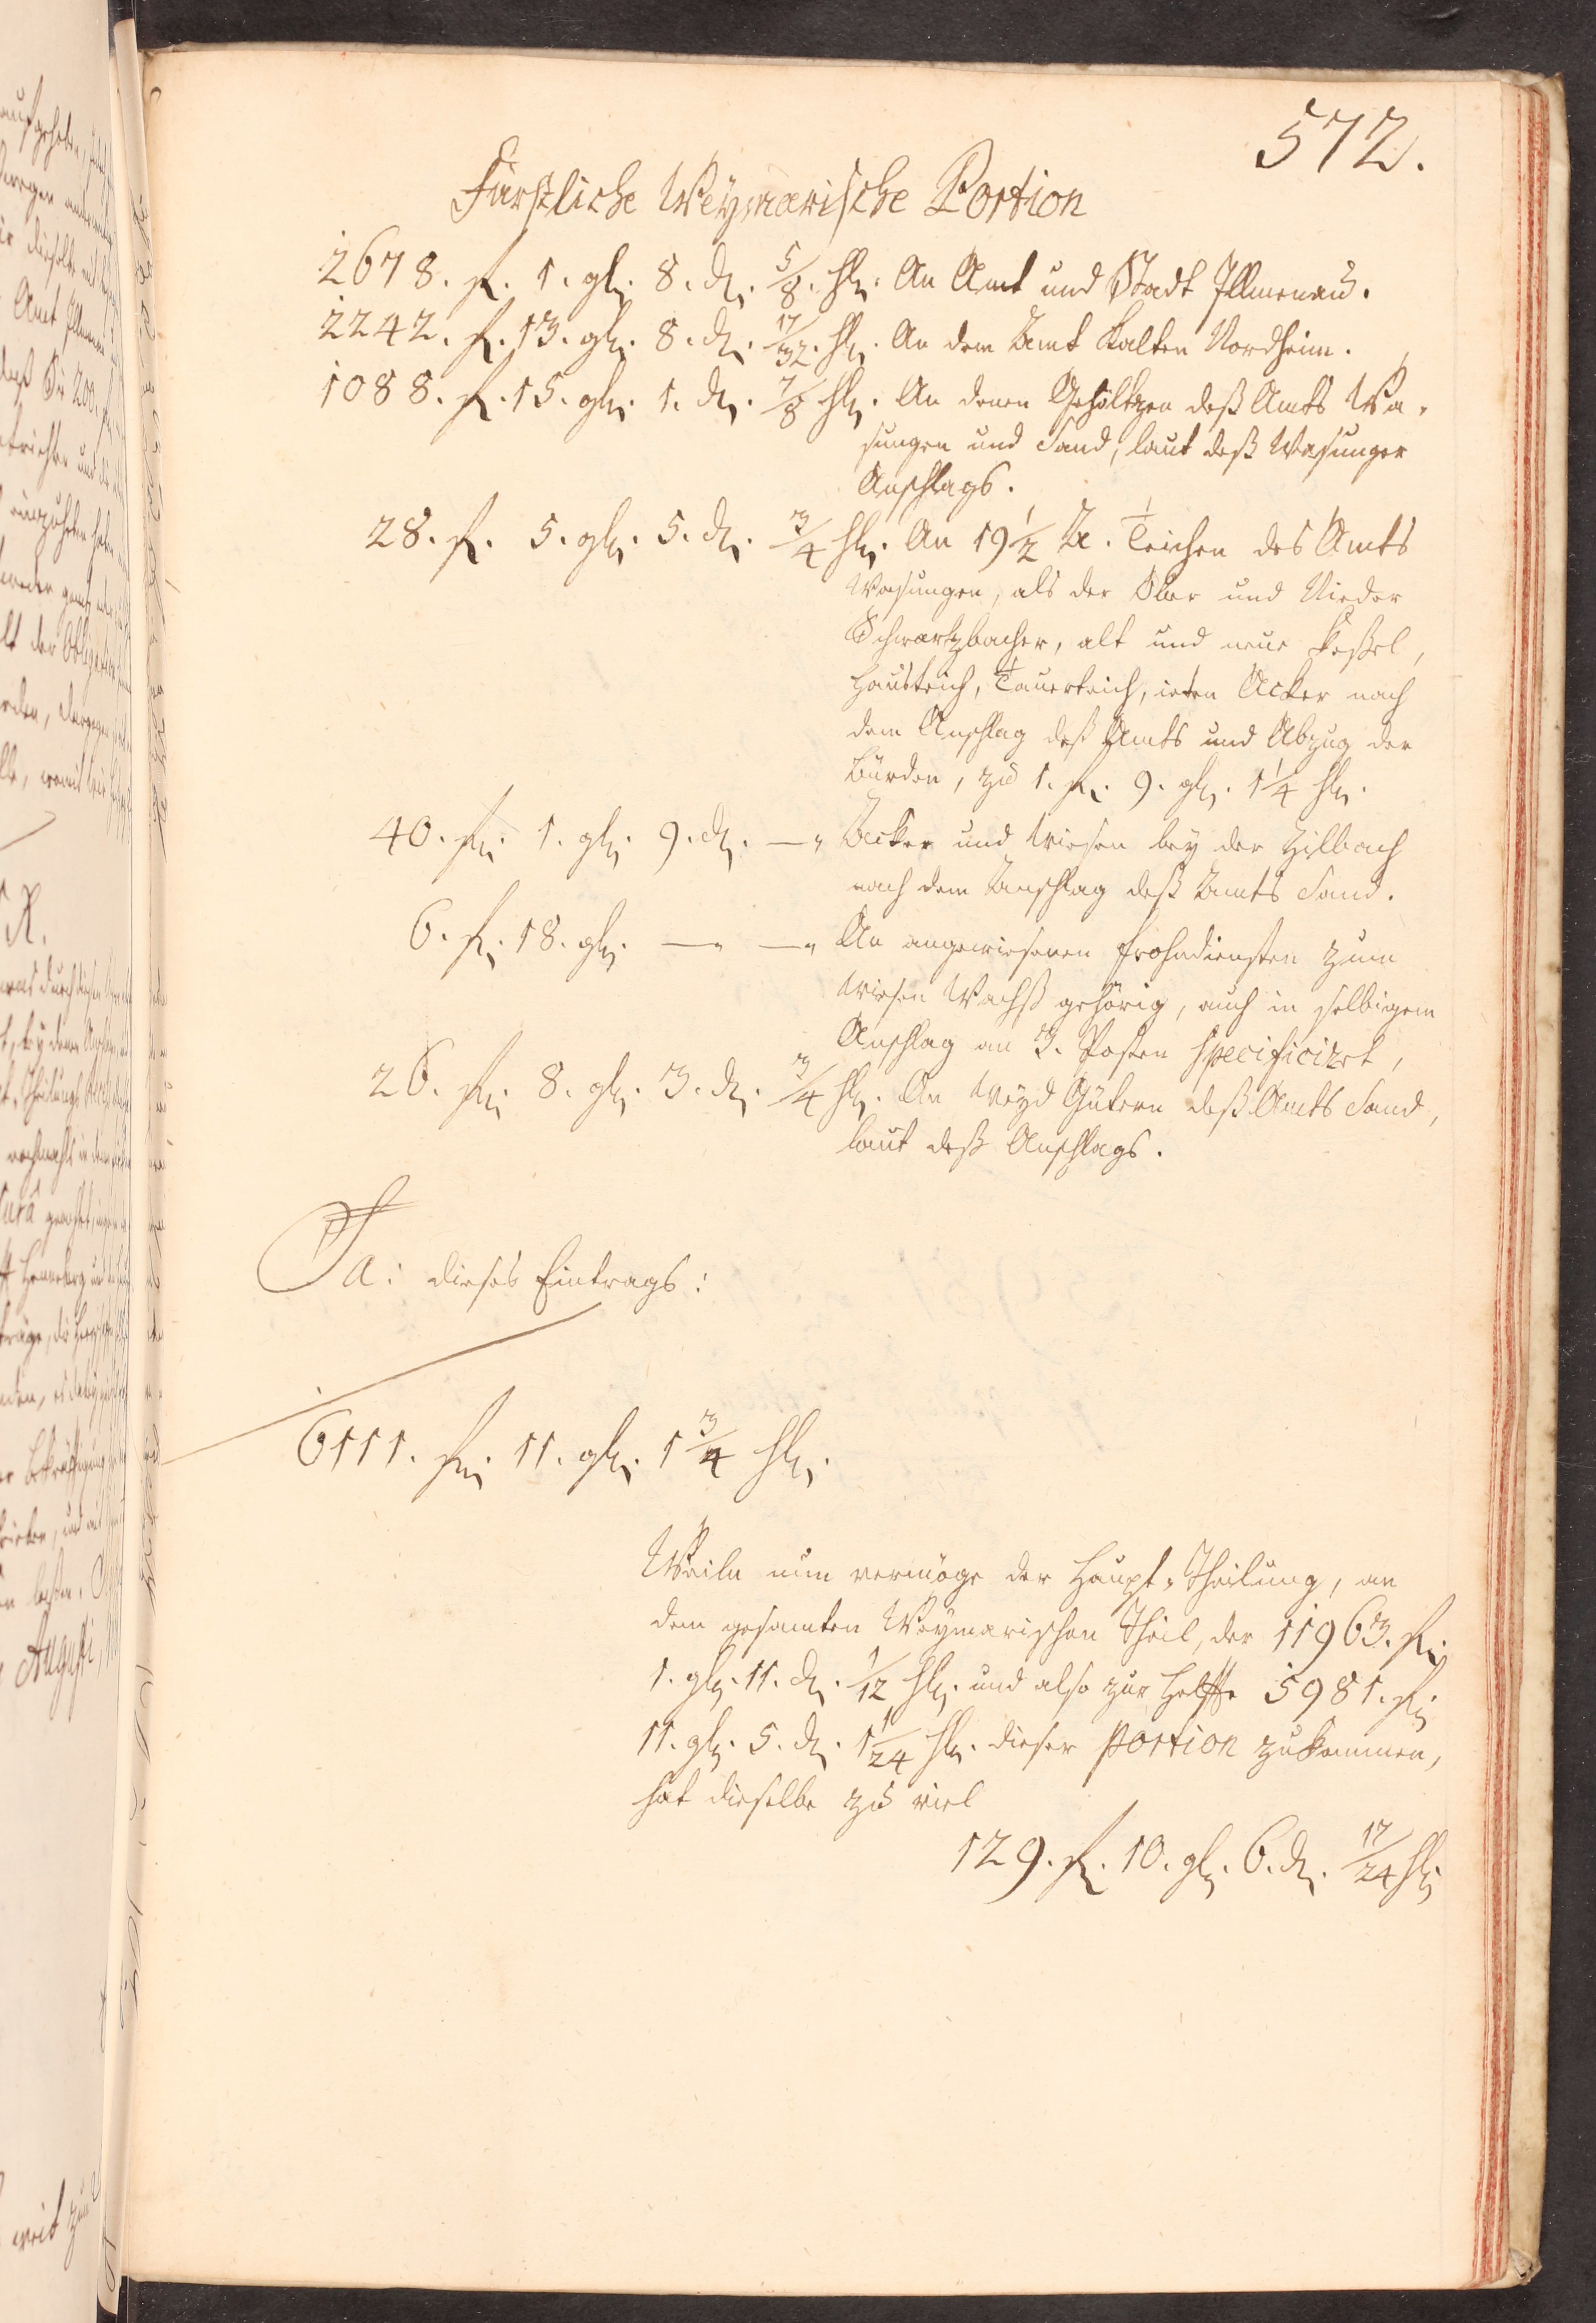 572.
Fürstliche Weÿmarische Portion
2678. fl. 1. gl. 8. d. 5/8. hl. An Amt und Stadt Jllmenau.
2242. fl. 13. gl. 8. d. 17/32. hl. An dem Amt Kalten Nordheim.
1088. fl. 15. gl. 1. d. 7/8 hl. An denen Gehöltzen deß Amts Wa-
sungen und Sand, laut deß Wasunger
Anschlags.
28. fl. 5. gl. 5. d. 3/4 hl. An 19 1/2 A. Teichen des Amts
Wasungen, als der Ober und Nieder
Schwartzbacher, alt und neue Keßel,
Hausteich, Tauerteich, ieten Acker nach
dem Anschlag deß Amts und Abzug der
Bürden, zu 1. fl. 9. gl. 1 1/4 hl.
40. fl. 1. gl. 9. d. — Äcker und Wiesen bey der Zilbach
nach dem Anschlag deß Amts Sand.
6. fl. 18. gl. — — An angewiesenen Frohndiensten zum
Wiesen Wachß gehörig, auch in selbigem
Anschlag an 3. Posten specificirt,
26. fl. 8. gl. 3. d. 3/4 hl. An Weyd Gütern deß Amts Sand,
laut deß Anschlags.
Sa: dieses Eintrags:
6111. fl. 11. gl. 1 3/4 hl.
Weiln nun vermöge der Haupt-Theilung, an
dem gesamten Weymarischen Theil, der 11963. fl.
1. gl. 11. d. 1/12 hl. und also zur Helffte 5981. fl.
11. gl. 5. d. 1 1/24 hl. dieser Portion zukommen,
hat dieselbe zu viel
129. fl. 10. gl. 6. d. 17/24 hl.